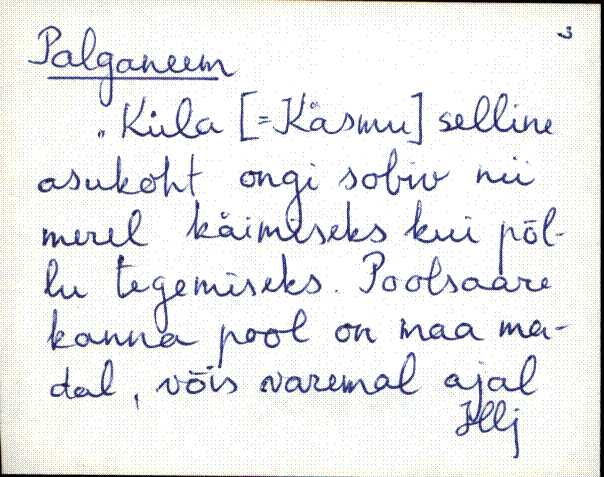 3
Palganeem
„Küla [=Käsmu] selline
asukoht ongi sobiv nii
merel käimiseks kui põl-
lu tegemiseks. Poolsaare
kanna pool on maa ma-
dal, võis varemal ajal